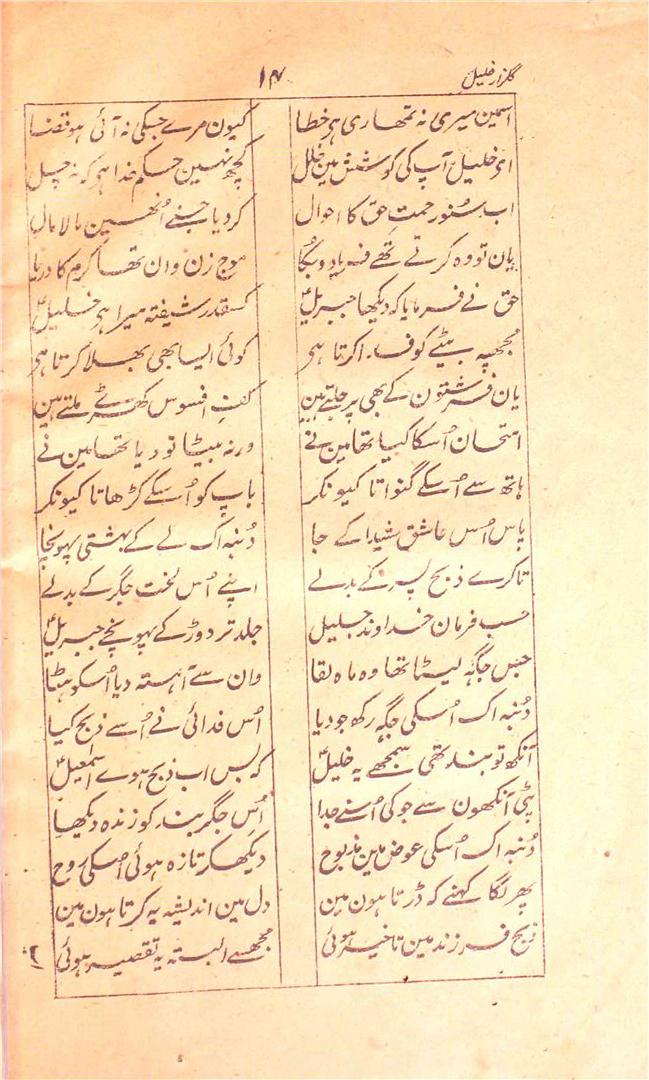 گلزار خلیل ۱۴
اسمین میری نہ تمھاری ہی خطا کیون مرے جسکی نہ آئی ہو قضا
ای خلیل آپ کی کوشش مین خلل کچھ نہین حکم خدا ہو کہ نہ چل
اب سنو رحمتِ حق کا احوال کر دیا جسنے اُنھین مالا مال
یان تو وہ کرتے تھے فریاد و بکا موج زن وان تھا کرم کا دریا
حق نے فرمایا کہ دیکھا جبریلؑ کسقدر شیفتہ میرا ہو خلیلؑ
مجھپہ بیٹے کو فدا کرتا ہی کوئی ایسا بھی بھلا کرتا ہی
یان فرشتون کے بھی پر جلتے ہین کفِ افسوس کھڑے ملتے ہین
امتحان اُسکا کیا تھا مین نے ورنہ بیٹا تو دیا تھا مین نے
ہاتھ سے اُسکے گنواتا کیونکر باپ کو اُسکے کڑھاتا کیونکر
پاس اُس عاشق شیدا کے جا دُنبہ اک لے کے بہشتی پہونچا
تا کرے ذبح پسر کے بدلے اپنے اُس لخت جگر کے بدلے
حسب فرمان خداوند جلیل جلد تر دوڑ کے پہونچے جبریلؑ
جس جگہہ لیٹا تھا وہ ماہ لقا وان سے آہستہ دیا اُسکو ہٹا
دُنبہ اک اُسکی جگہہ رکھ جو دیا اُس فدائی نے اُسے ذبح کیا
آنکھ تو بند تھی سمجھے یہ خلیلؑ کہ بس اب ذبح ہوے اسمٰعیلؑ
پٹی آنکھون سے جو کی اُسنے جدا اُس جگر بند کو زندہ دیکھا
دُنبہ اک اُسکی عوض مین مذبوح دیکھکر تازہ ہوئی اُسکی روح
پھر لگا کہنے کہ ڈرتا ہون مین دل مین اندیشہ یہ کرتا ہون مین
ذبح فرزند مین تاخیر ہوئی مجھسے البتہ یہ تقصیر ہوئی
۲